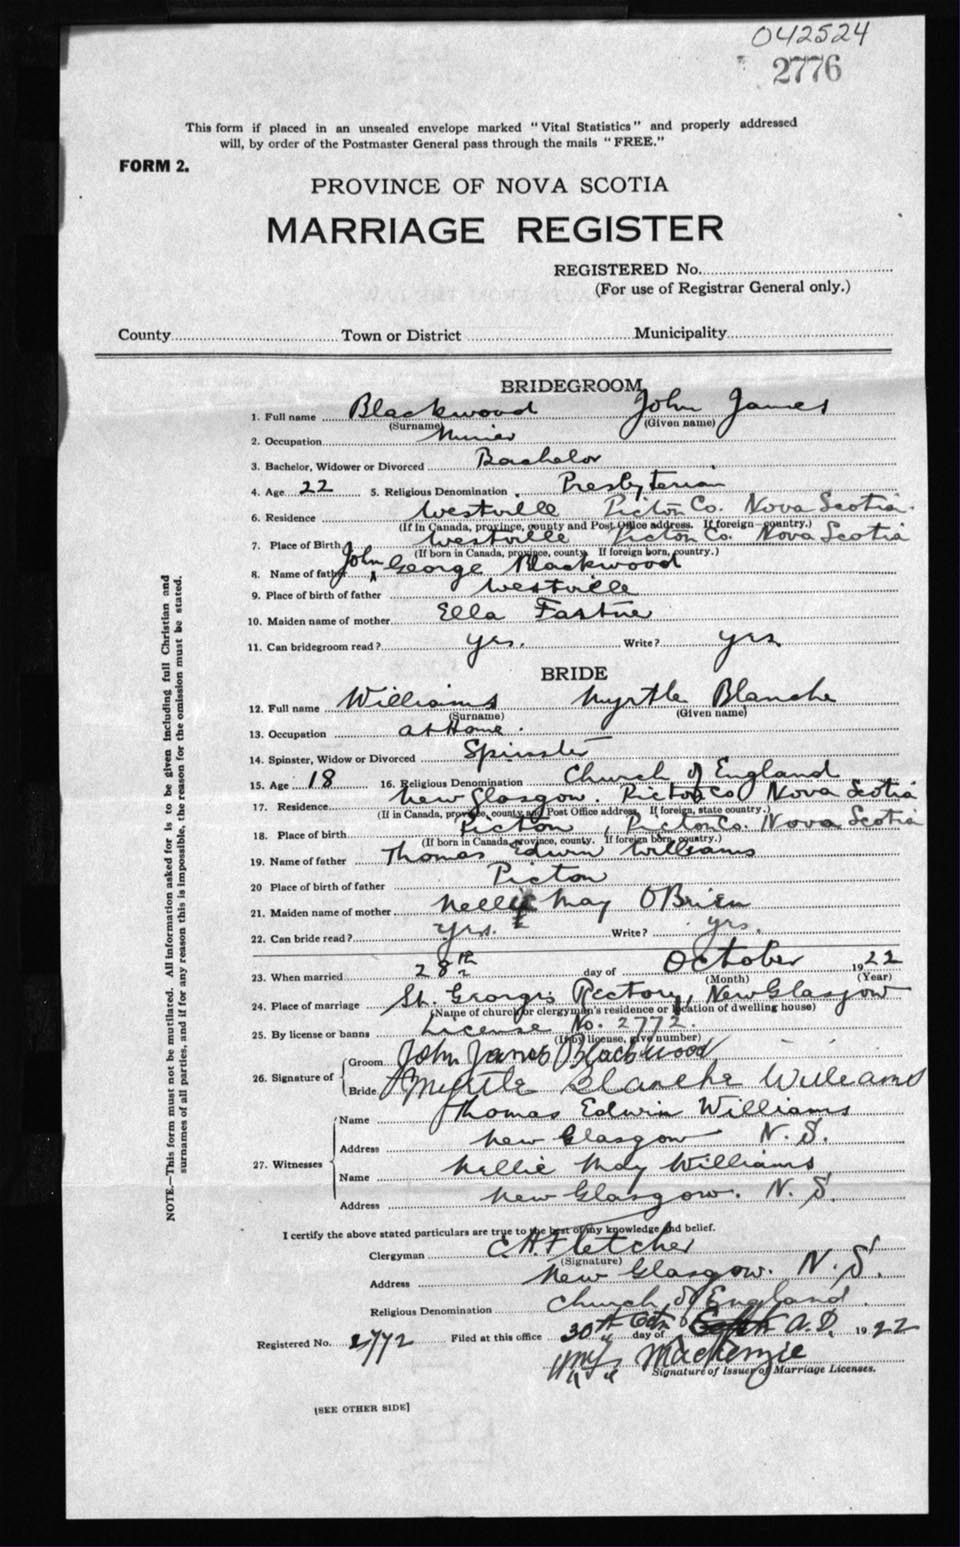 042524
2776
This form if placed in an unsealed envelope marked "Vital Statistics" and properly addressed
will, by order of the Postmaster General pass through the mails "FREE."
FORM 2.
PROVINCE OF NOVA SCOTIA
MARRIAGE REGISTER
REGISTERED No.
(For use of Registrar General only.)
County Town or District Municipality
BRIDEGROOM
1. Full name Blackwood John James
(Surname) (Given name)
2. Occupation Miner
3. Bachelor, Widower or Divorced Bachelor
4. Age 22 5. Religious Denomination Presbyterian
6. Residence Westville Picton Co. Nova Scotia.
(If in Canada, province, county and Post Office address. If foreign country.)
7. Place of Birth Westville Picton Co. Nova Scotia
(If born in Canada, province, county. If foreign born, country.)
8. Name of father John George Blackwood
9. Place of birth of father Westville
10. Maiden name of mother Ella
11. Can bridegroom read? yes. Write? yes
BRIDE
12. Full name Williams Myrtle Blanche
(Surname) (Given name)
13. Occupation at Home.
14. Spinster, Widow or Divorced Spinster
15. Age 18 16. Religious Denomination Church of England
17. Residence New Glasgow. Picton Co Nova Scotia
(If in Canada, province, county and Post Office address, If foreign, state country.)
18. Place of birth Picton, Picton Co. Nova Scotia
(If born in Canada, province, county. If foreign born, country.)
19. Name of father Thomas Edwin Williams
20 Place of birth of father Picton
21. Maiden name of mother Nellie May O'Brien
22. Can bride read? yes. Write? yes.
23. When married 28th day of October 1922
(Month) (Year)
24. Place of marriage St. George's Rectory, New Glasgow
(Name of church or clergyman's residence or location of dwelling house)
25. By license or banns License No. 2772.
(If by license, give number)
26. Signature of
Groom John James Blackwood
Bride Myrtle Blanche Williams
27. Witnesses
Name Thomas Edwin Williams
Address New Glasgow N.S.
Name Nellie May Williams
Address New Glasgow. N.S.
I certify the above stated particulars are true to the best of my knowledge and belief.
Clergyman E.H. Fletcher
(Signature)
Address New Glasgow. N.S.
Religious Denomination Church of England
Registered No. 2772 Filed at this office 30th day of Octr A.D. 1922
Mackenzie
Signature of Issuer of Marriage Licenses.
[SEE OTHER SIDE]
NOTE.—This form must not be mutilated. All information asked for is to be given including full Christian and
surnames of all parties, and if for any reason this is impossible, the reason for the omission must be stated.